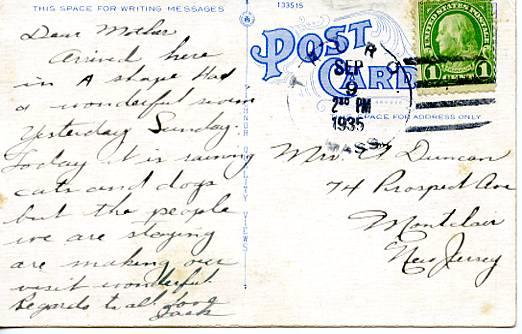 THIS SPACE FOR WRITING MESSAGES
133515
POST CARD
SPACE FOR ADDRESS ONLY
UNITED STATES POSTAGE
1 1
SEP
9
2 PM
1935
MASS
Dear Mother
Arrived here
in A shape Had
a wonderful swim
Yesterday Sunday.
Today it is raining
cats and dogs
but the people
we are staying
are making our
visit wonderful.
Regards to all
Jack
Mrs. Duncan
74 Prospect Ave
Montclair
New Jersey
QUALITY VIEWS